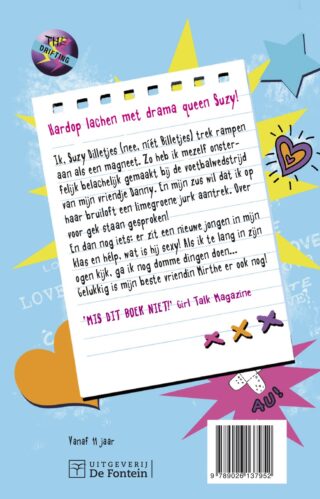 THE
DRIFTING
Hardop lachen met drama queen Suzy!
Ik, Suzy Billetjes (nee, niét Billetjes) trek rampen
aan als een magneet. Zo heb ik mezelf onster-
felijk belachelijk gemaakt bij de voetbalwedstrijd
van mijn vriendje Danny. En mijn zus wil dat ik op
haar bruiloft een limegroene jurk aantrek. Over
voor gek staan gesproken!
En dan nog iets: er zit een nieuwe jongen in mijn
klas en hélp, wat is hij sexy! Als ik te lang in zijn
ogen kijk, ga ik nog domme dingen doen...
Gelukkig is mijn beste vriendin Mirthe er ook nog!
'MIS DIT BOEK NIET!' Girl Talk Magazine
LOVE
AU!
Vanaf 11 jaar
UITGEVERIJ
De Fontein
9789026137952